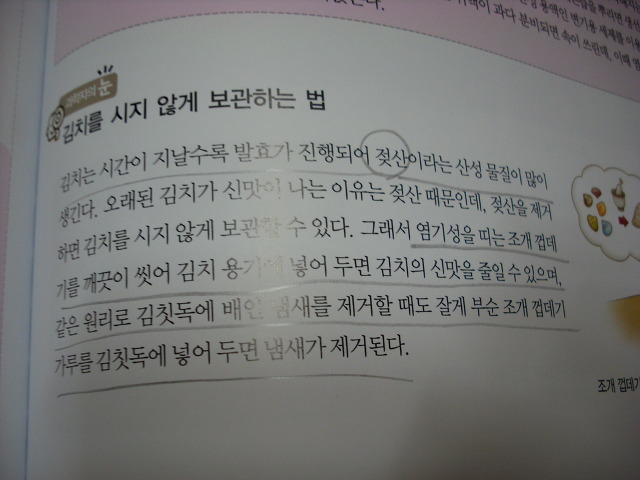 과다 분비되면 속이 쓰린데, 이때
과학자의 눈
김치를 시지 않게 보관하는 법
김치는 시간이 지날수록 발효가 진행되어 젖산이라는 산성 물질이 많이
생긴다. 오래된 김치가 신맛이 나는 이유는 젖산 때문인데, 젖산을 제거
하면 김치를 시지 않게 보관할 수 있다. 그래서 염기성을 띠는 조개 껍데
기를 깨끗이 씻어 김치 용기에 넣어 두면 김치의 신맛을 줄일 수 있으며,
같은 원리로 김칫독에 배인 냄새를 제거할 때도 잘게 부순 조개 껍데기
가루를 김칫독에 넣어 두면 냄새가 제거된다.
조개 껍데기